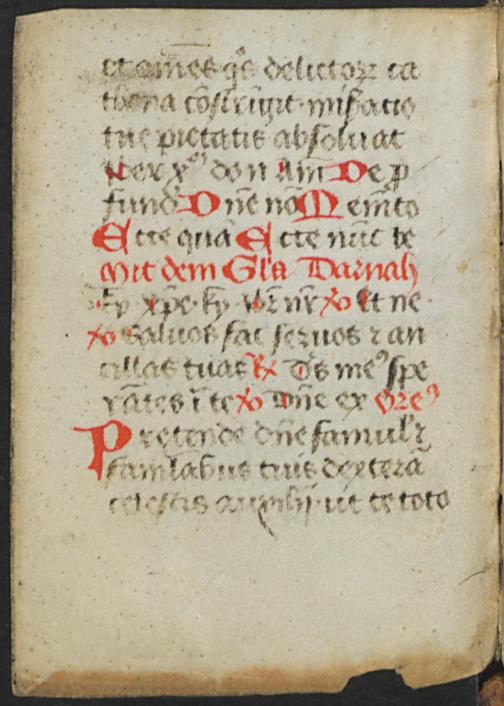 et omēs q̄s delictoꝝ ca
thena cōstringit misatio
tue pietatis absoluat
Per xp̄ do n Am̄ De p
fundꝰ Dn̄e nō Memēto
Ecce quā Ecce nūc be
mit dem Gl̄a Darnah
Ky xp̄e ky Pr̄ nr̄ ꝟo Et ne
ꝟo Saluos fac seruos ⁊ an
cillas tuas ℟ Dꝰs meꝰ spe
rātes ī te ꝟo Dn̄e ex Oreꝰ
Pretende dn̄e famulꝭ ⁊
famlabus tuis dexterā
celestis auxilij ut te toto